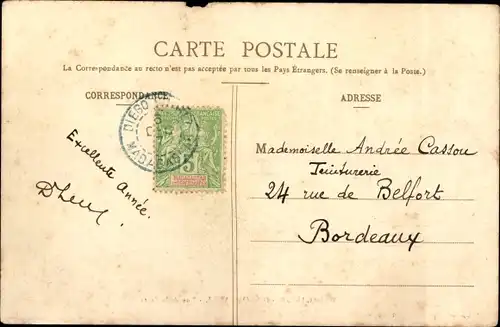 CARTE POSTALE
La Correspondance au recto n'est pas acceptée par tous les Pays Étrangers. (Se renseigner à la Poste.)
CORRESPONDANCE
ADRESSE
DIEGO
MADAGASCAR
5
Excellente Année.
Mademoiselle Andrée Cassou
Teinturerie
24 rue de Belfort
Bordeaux